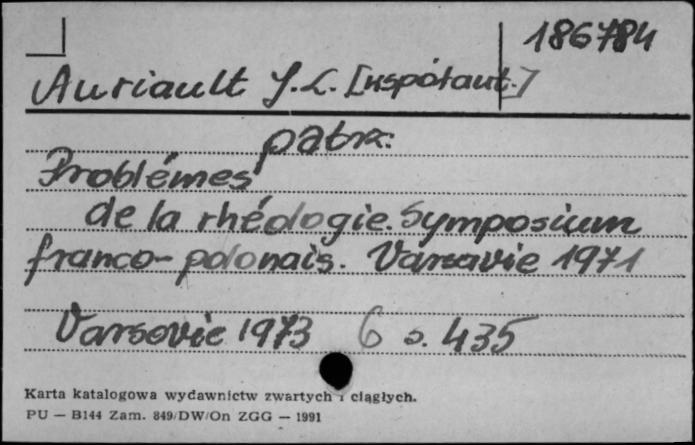 186784
Auriault J.L. [współaut.]
patrz:
Problémes
de la rhéologie. Symposium
franco-polonais. Varsavie 1971
Varsovie 1973 6 s. 435
Karta katalogowa wydawnictw zwartych i ciągłych.
PU — B144 Zam. 849/DW/On ZGG — 1991